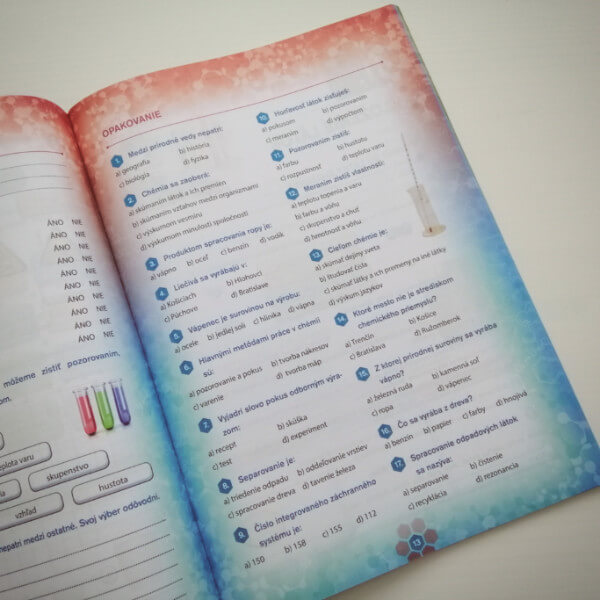 ÁNO NIE
ÁNO NIE
ÁNO NIE
ÁNO NIE
ÁNO NIE
ÁNO NIE
ÁNO NIE
ÁNO NIE
ÁNO NIE
môžeme zistiť pozorovaním,
teplota varu
skupenstvo
hustota
vzhľad
nepatrí medzi ostatné. Svoj výber odôvodni.
OPAKOVANIE
1. Medzi prírodné vedy nepatrí:
a) geografia b) história
c) biológia d) fyzika
2. Chémia sa zaoberá:
a) skúmaním látok a ich premien
b) skúmaním vzťahov medzi organizmami
c) výskumom vesmíru
d) výskumom minulosti spoločnosti
3. Produktom spracovania ropy je:
a) vápno b) oceľ c) benzín d) vodík
4. Liečivá sa vyrábajú v:
a) Košiciach b) Hlohovci
c) Púchove d) Bratislave
5. Vápenec je surovinou na výrobu:
a) ocele b) jedlej soli c) hliníka d) vápna
6. Hlavnými metódami práce v chémii
sú:
a) pozorovanie a pokus b) tvorba nákresov
c) varenie d) tvorba máp
7. Vyjadri slovo pokus odborným výra-
zom:
a) recept b) skúška
c) test d) experiment
8. Separovanie je:
a) triedenie odpadu b) oddeľovanie vrstiev
c) spracovanie dreva d) tavenie železa
9. Číslo integrovaného záchranného
systému je:
a) 150 b) 158 c) 155 d) 112
10. Horľavosť látok zisťuješ:
a) pokusom b) pozorovaním
c) meraním d) výpočtom
11. Pozorovaním zistíš:
a) farbu b) hustotu
c) rozpustnosť d) teplotu varu
12. Meraním zistíš vlastnosti:
a) teplotu topenia a varu
b) farbu a vôňu
c) skupenstvo a chuť
d) hmotnosť a vôňu
13. Cieľom chémie je:
a) skúmať dejiny sveta
b) študovať čísla
c) skúmať látky a ich premeny na iné látky
d) výskum jazykov
14. Ktoré mesto nie je strediskom
chemického priemyslu?
a) Trenčín b) Košice
c) Bratislava d) Ružomberok
15. Z ktorej prírodnej suroviny sa vyrába
vápno?
a) železná ruda b) kamenná soľ
c) ropa d) vápenec
16. Čo sa vyrába z dreva?
a) benzín b) papier c) farby d) hnojivá
17. Spracovanie odpadových látok
sa nazýva:
a) separovanie b) čistenie
c) recyklácia d) rezonancia
13